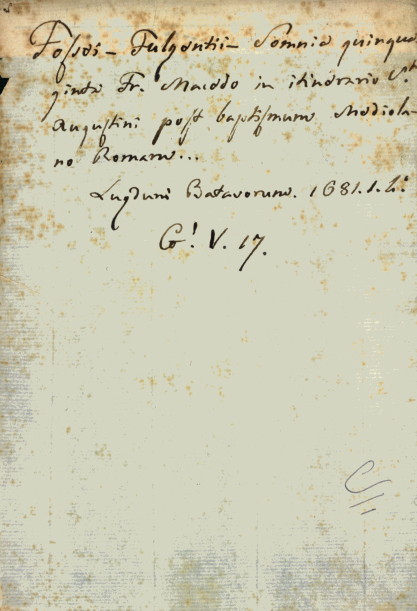 Fossei - Fulgentii - Somnia quinqua
ginta Fr. Macedo in itinerario Sti
Augustini post baptismum Mediola-
no Romam...
Lugduni Batavorum. 1681. 1. 4:
V. 17.